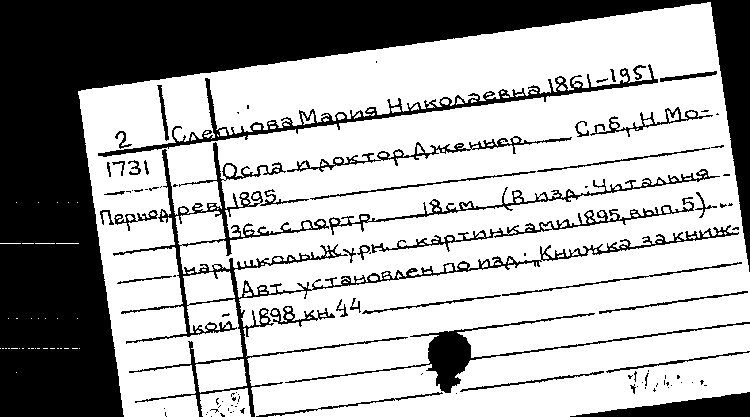 2 Слепцова, Мария Николаевна, 1861-1951
1731 Оспа и доктор Дженнер. Спб., Н. Мо-
Период. рев, 1895.
36с. с портр. 18см. (В изд.: Читальня
нар. школы. Журн. с картинками. 1895, вып. 5)
Авт. установлен по изд.: „Книжка за книж-
кой", 1898, кн. 44.